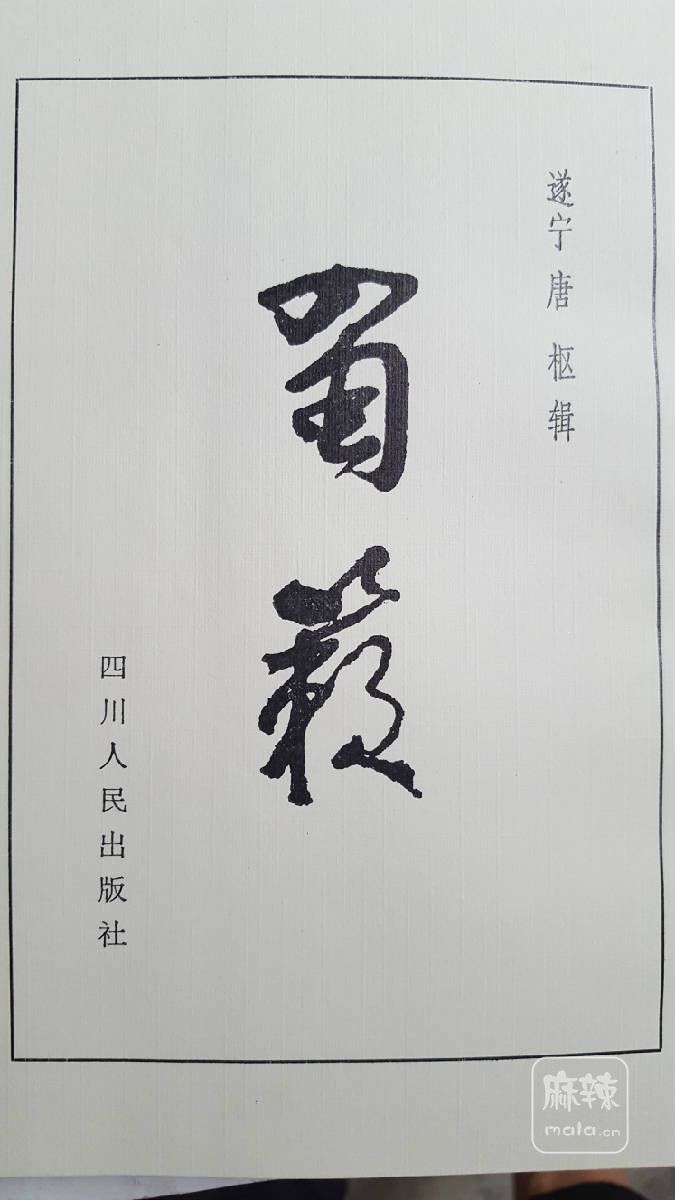 遂宁唐枢辑
蜀籁
四川人民出版社
麻辣
mala.cn